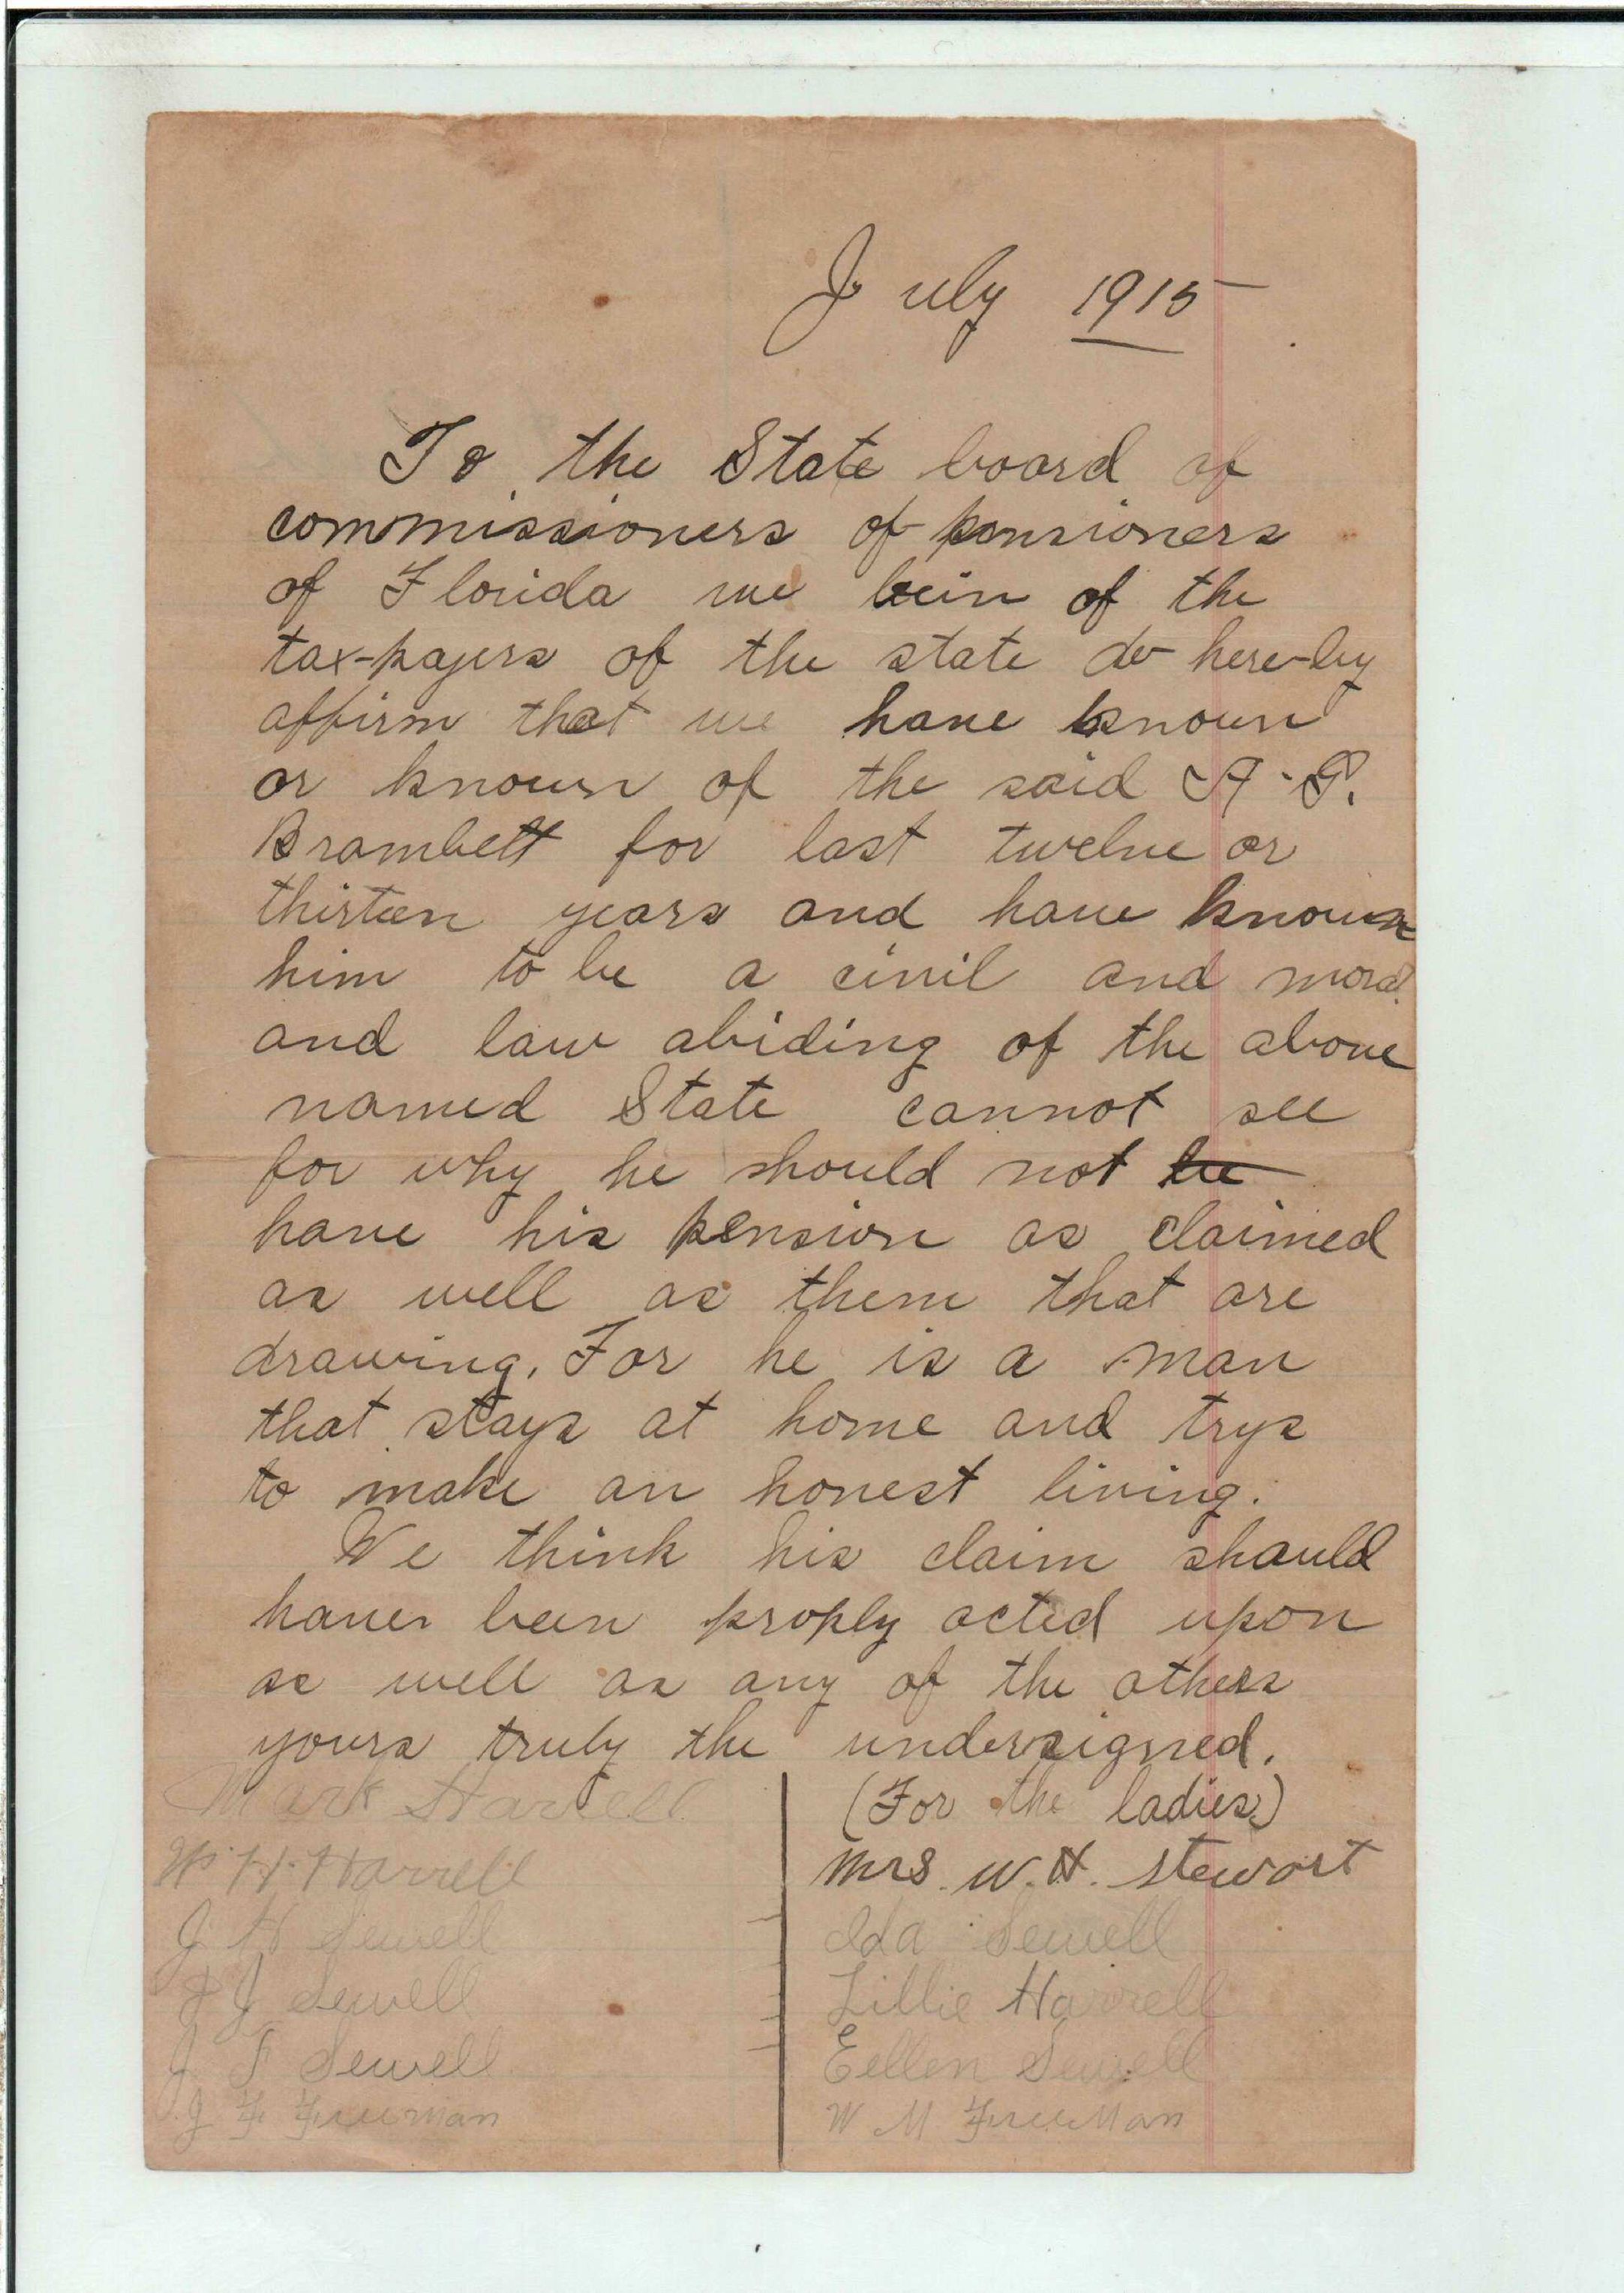 July 1915
To the State board of
commissioners of pensioners
of Florida we bein of the
tax-payers of the state do here-by
affirm that we have known
or known of the said A. P.
Brambett for last twelve or
thirteen years and have known
him to be a civil and moral
and law abiding of the above
named State cannot see
for why he should not be
have his pension as claimed
as well as them that are
drawing. For he is a man
that stays at home and trys
to make an honest living.
We think his claim should
haven been proply acted upon
as well as any of the others
yours truly the undersigned.
Mark Harrell
W. H. Harrell
J H Sewell
J J Sewell
J F Sewell
J F Freeman
(For the ladies)
Mrs. W. H. Stewart
Ida Sewell
Lillie Harrell
Eellen Sewell
W M Freeman